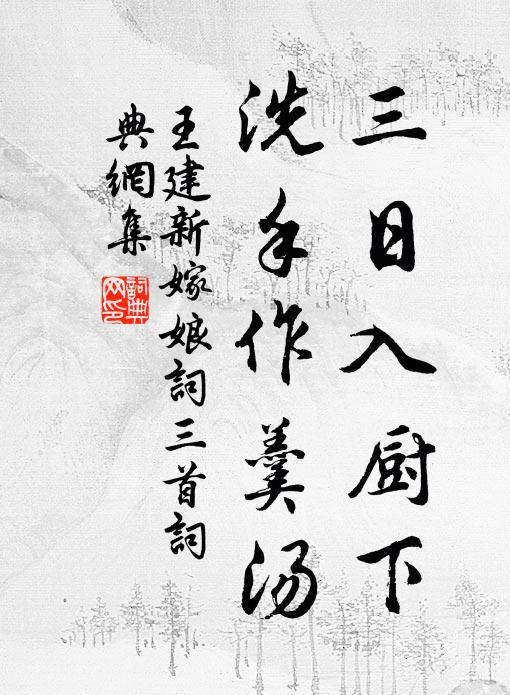 三日入厨下
洗手作羹汤
王建新嫁娘詞三首詞
典網集
詞典
网印